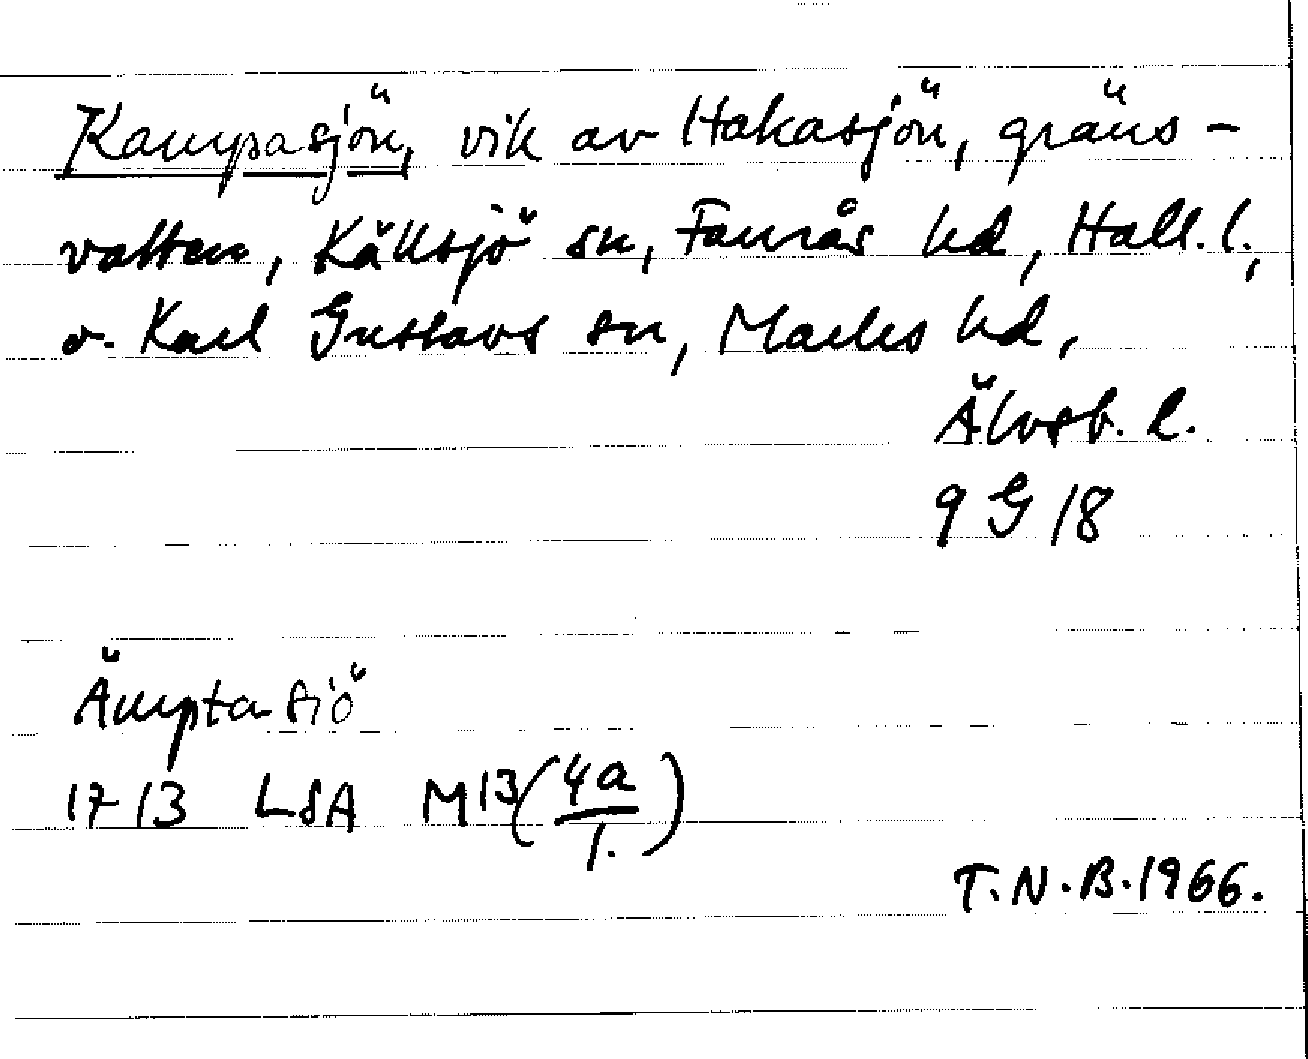 Kampasjön, vik av Hakasjön, gräns-
vatten, Källsjö sn, Faurås hd, Hall. l.,
o. Karl Gustavs sn, Marks hd,
Älvsb. l.
9 G 18
Ämpta siö
1713 LSA M13(4a/1.)
T.N.B. 1966.